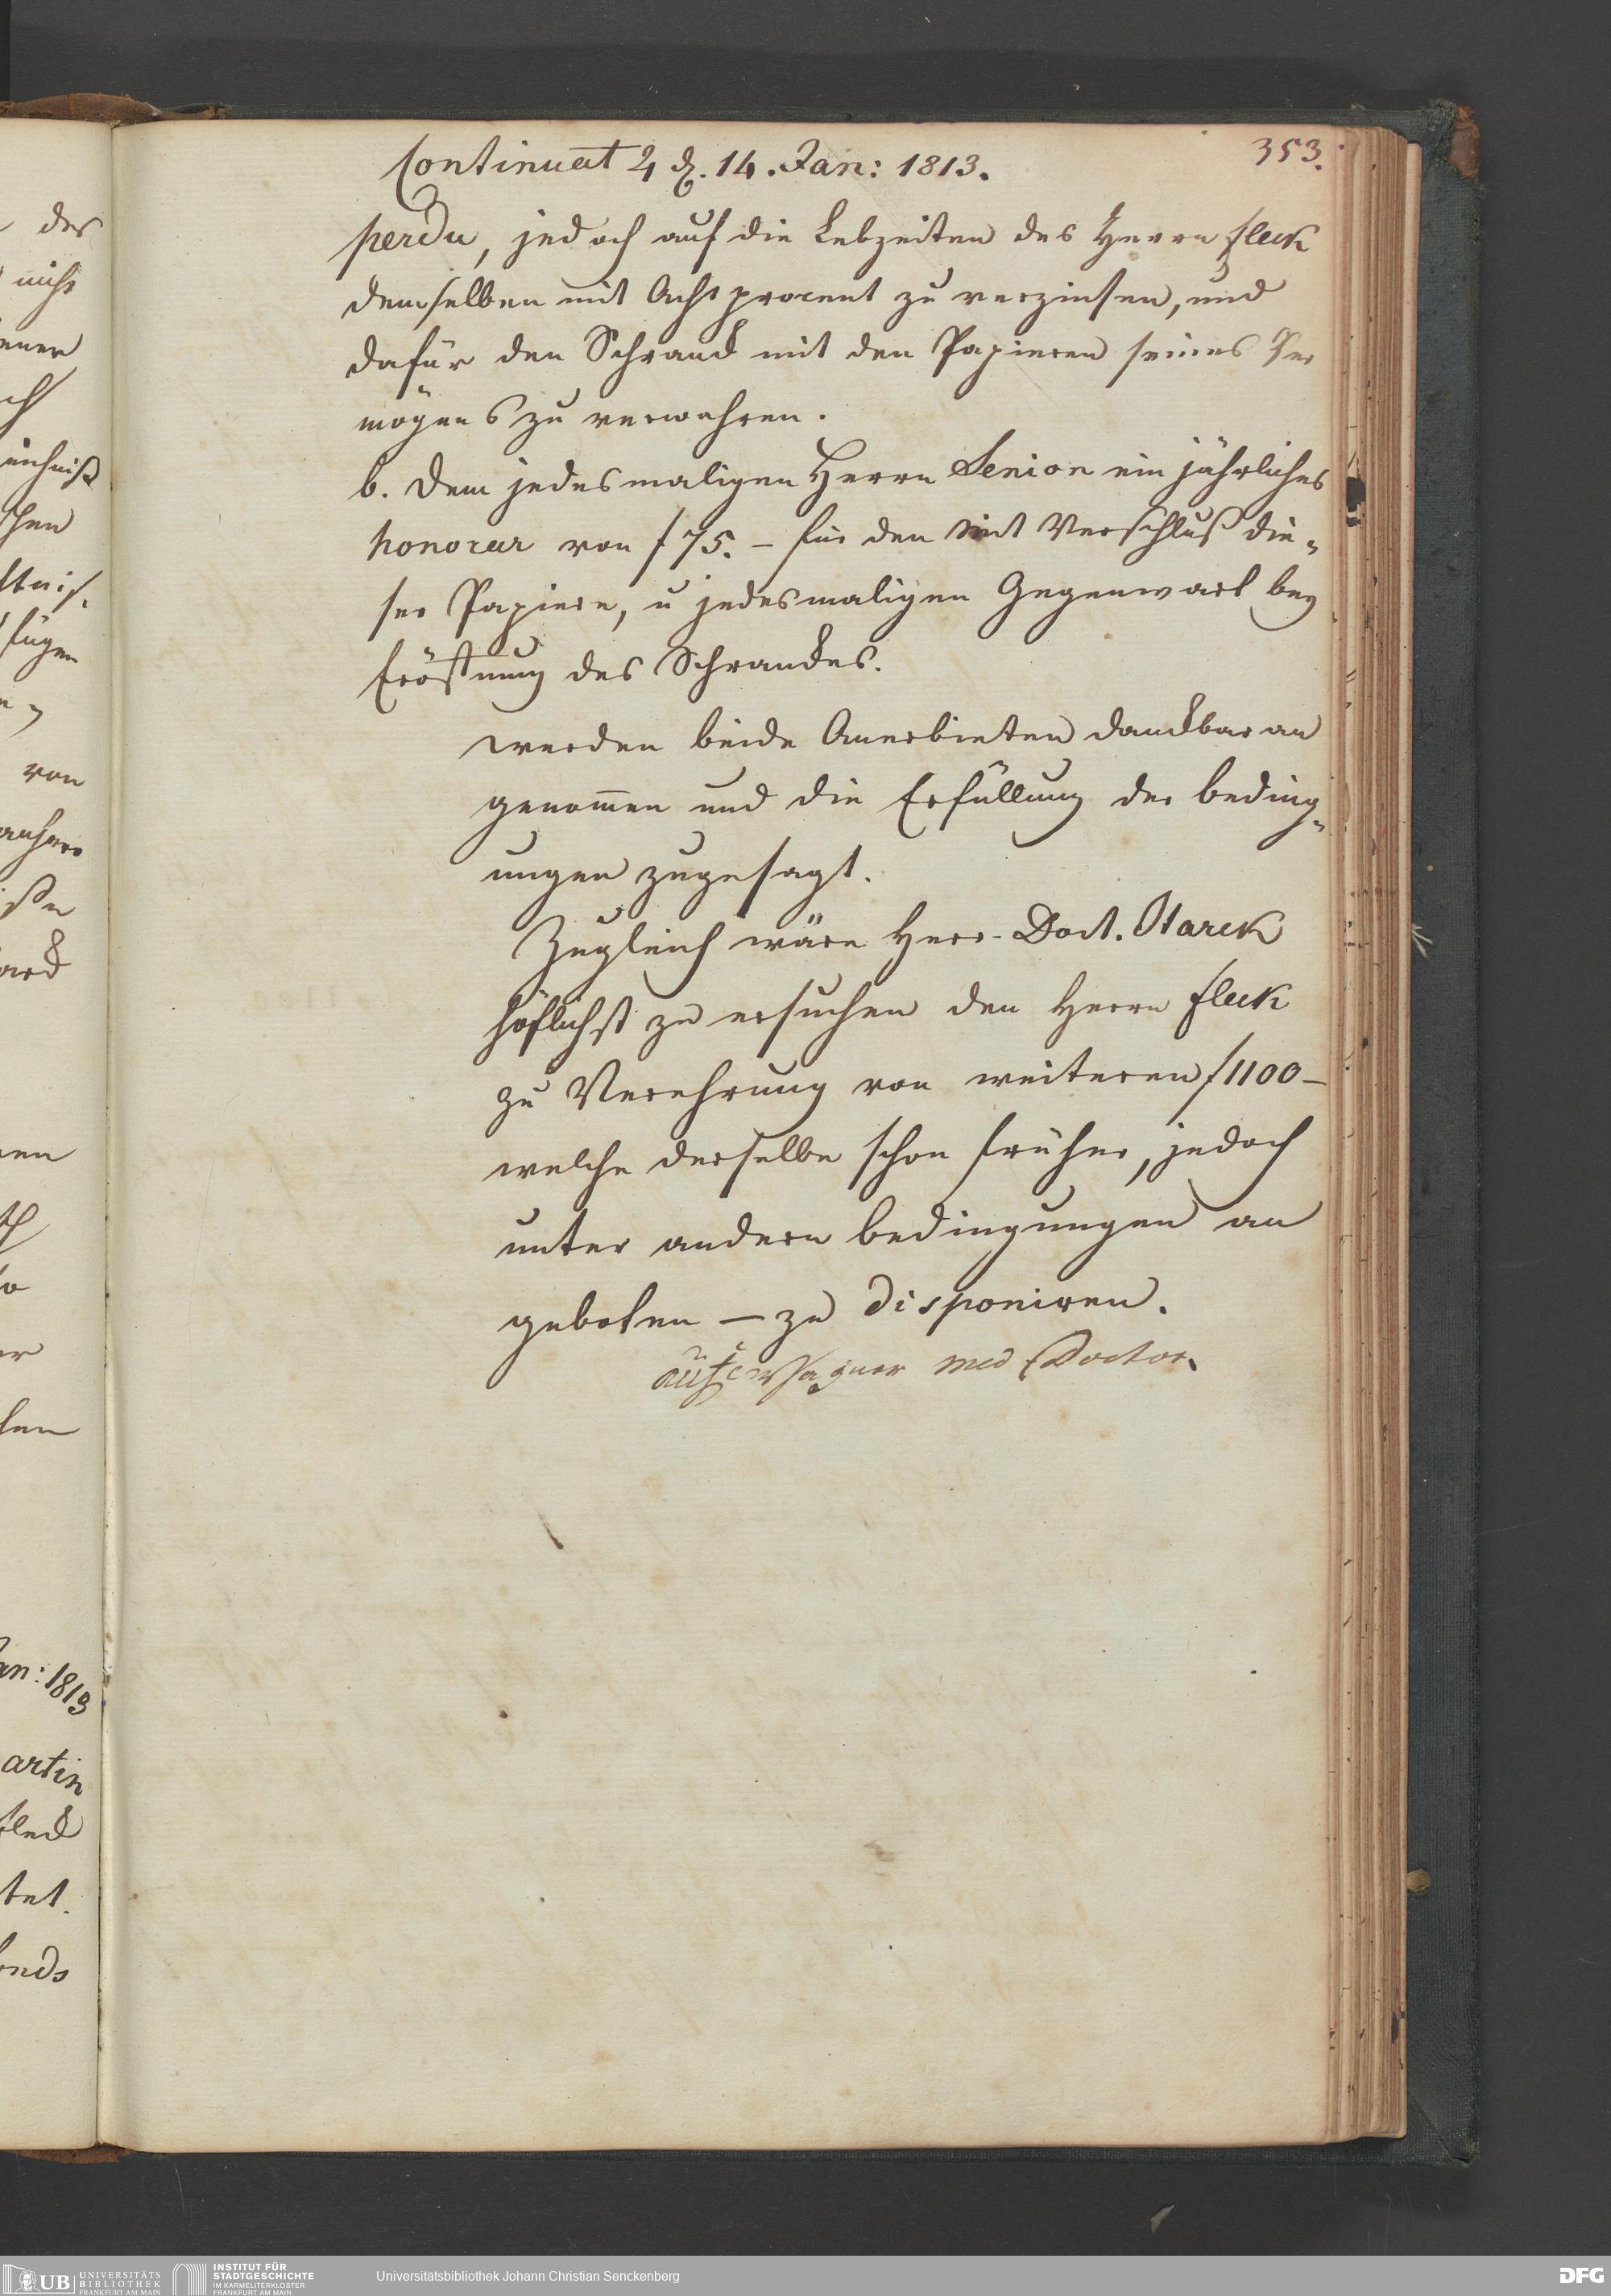 353.
Continuat ♃ d. 14. Jan: 1813.
perdu, jedoch auf die Lebzeiten des Herrn Fleck
demselben mit Acht procent zu verzinsen, und
dafür den Schranck mit den Papieren seines Ver
mögens zu verwahren.
b. dem jedesmaligen Herrn Senior ein jährliches
honorar von f 75. – für den Mit Verschluß die„
ser Papiere, u jedesmaligen Gegenwart bey
Eröffnung des Schranckes.
werden beide Anerbieten danckbar an
genom̅en und die Erfüllung der beding„
ungen zugesagt.
Zugleich wäre Herr Doct. Starck
höflichst zu ersuchen den Herrn Fleck
zu Verehrung von weiteren f 1100 –
welche derselbe schon früher, jedoch
unter andern bedingungen an
geboten – zu disponiren.
med Doctor.
des
nicht
von
an: 1813
artin
UB UNIVERSITÄTS
BIBLIOTHEK
FRANKFURT AM MAIN
INSTITUT FÜR
STADTGESCHICHTE
IM KARMELITERKLOSTER
FRANKFURT AM MAIN
Universitätsbibliothek Johann Christian Senckenberg
DFG